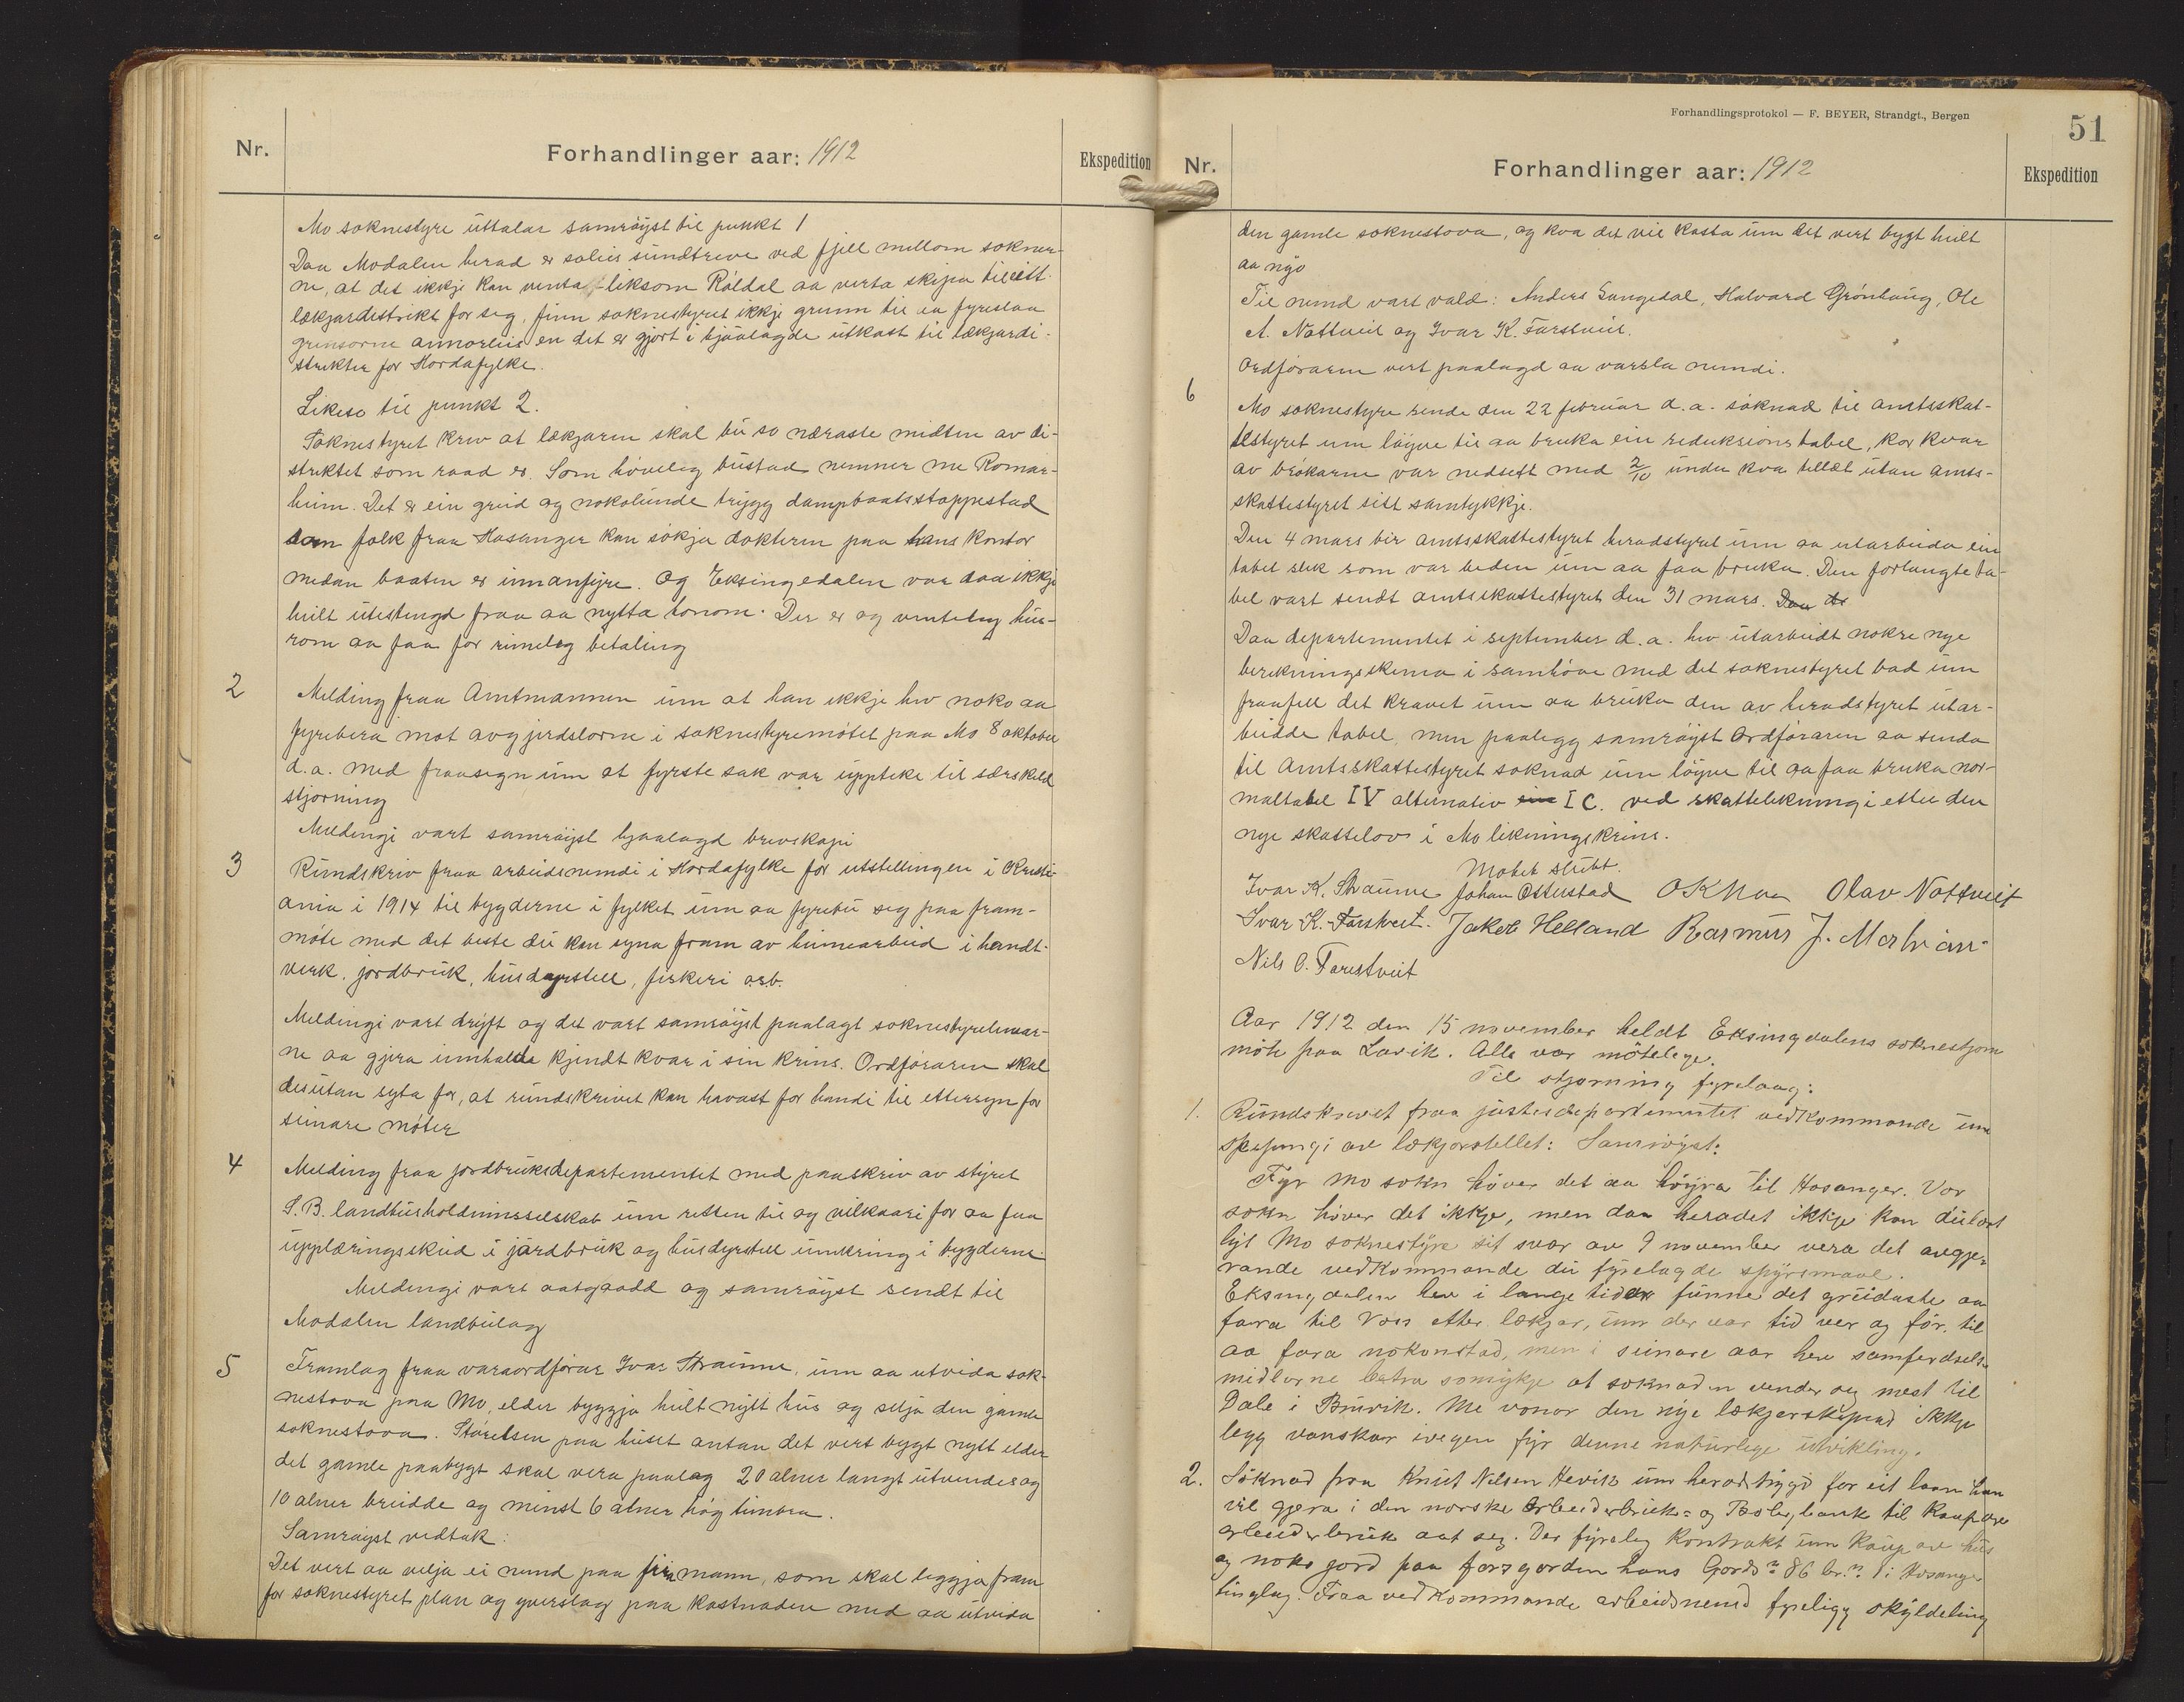 Nr.
Forhandlinger aar: 1912
Ekspedition
Mo soknestyre uttalar samrøyst til punkt 1
Daa Modalen herad er soleis sundtreve ved fjell millom sokner-
ne, at det ikkje kan venta liksom Røldal aa verta skipa til eitt
lækjardistrikt for seg, finn soknestyret ikkje grunn til aa fyreslaa
grensorne annorleis en det er gjort i hjaalagde utkast til lækjardi-
strikter for Hordafylke.
Likeso til punkt 2.
Soknestyret krev at lækjaren skal bu so næraste midten av di-
striktet som raad er. Som høveleg bustad nemner me Romar-
heim. Det er ein greid og nokolunde trygg dampbaatsstoppestad
som folk fraa Hosanger kan søkja dokteren paa hans kontor
medan baaten er innanfyre. Og Eksingedalen var daa ikkje
heilt utestengd fraa aa nytta honom. Der er og venteleg hus-
rom aa faa for rimeleg betaling
2
Melding fraa Amtmannen um at han ikkje hev noko aa
fyrebera mot avgjerdslorne i soknestyremøtet paa Mo 8 oktober
d.a. med fraasegn um at fyrste sak var uppteke til særskild
stjorning
Meldingi vart samrøyst hjaalagd brevskapi
3
Rundskriv fraa arbeidsnemdi i Hordafylke for utstellingen i Kristi-
ania i 1914 til bygderne i fylket um aa fyrebu seg paa fram-
møte med det beste dei kan syna fram av heimearbeid i handt-
verk, jordbruk, husdyrstell, fiskeri osb.
Meldingi vart drøft og det vart samrøyst paalagt soknestyrelemar-
ne aa gjera innhalde kjendt kvar i sin krins. Ordføraren skal
desutan syta for, at rundskrivet kan havast for handi til ettersyn for
seinare møter
4
Melding fraa jordbruksdepartementet med paaskriv av styret
S.B. landhusholdninsselskab um retten til og vilkaari for aa faa
upplæringsskeid i jordbruk og husdyrstell umkring i bygderne
Meldingi vart aatgaadd og samrøyst sendt til
Modalen landbulag
5
Framlag fraa varaordførar Ivar Straume, um aa utvida sok-
nestova paa Mo, elder byggja heilt nytt hus og selja den gamle
soknestova. Storelsen paa huset antan det vert bygt nytt elder
det gamle paabygt skal vera paalag 20 alner langt utvendes og
10 alner breidde og minst 6 alner høg timbra.
Samrøyst vedtak:
Det vert aa velja ei nemnd paa fira mann, som skal leggja fram
for soknestyret plan og yverslag paa kostnaden med aa utvida
Forhandlingsprotokol — F. BEYER, Strandgt., Bergen
51
Nr.
Forhandlinger aar: 1912
Ekspedition
den gamle soknestova, og kva det vil kosta um det vert bygt heilt
aa nyo
Til nemd vart vald: Anders Langedal, Halvard Grønhaug, Ole
A. Nottveit og Ivar K. Farestveit.
Ordføraren vert paalagd aa varsla nemdi.
6
Mo soknestyre sende den 22 februar d.a. søknad til amtsskat-
testyret um løyve til aa bruka ein reduksionstabel, kor kvar
av brøkarne var nedsett med 2/10 under kva tillæt utan amts-
skattestyret sitt samtykkje.
Den 4 mars bir amtsskattestyret heradstyret um aa utarbeida ein
tabel slik som var beden um aa faa bruka. Den forlangte ta-
bel vart sendt amtsskattestyret den 31 mars. Daa de
Daa departementet i september d.a. hev utarbeidt nokre nye
berekningsskema i samhøve med det soknestyret bad um
fraafell det kravet um aa bruka den av heradstyret utar-
beidde tabel, men paalegg samrøyst Ordføraren aa senda
til Amtsskattestyret søknad um løyve til aa faa bruka nor-
maltabel IV alternativ I C. ved skattelikningi etter den
nye skattelov i Mo likningskrins.
Møtet slutt.
Ivar K. Straume Johan Otterstad O K Moa Olav Nottveit
Ivar K. Farstveit. Jakob Helland Rasmus J. Mo
Nils O. Farestveit
Aar 1912 den 15 november heldt Eksingdalens soknestjorn
møte paa Lavik. Alle var møtelege.
Til stjorning fyrelaag:
1.
Rundskrivet fraa justisdepartementet vedkommande um
skipingi av lækjarstellet: Samrøyst:
Fyr Mo sokn høver det aa høyra til Hosanger. Vor
sokn høver det ikkje, men daa heradet ikkje kan deilast
lyt Mo soknestyre sit svar av 9 november vera det avgje-
rande vedkommande dei fyrelagde spyrsmaal.
Eksingdalen hev i lange tider funne det greidaste aa
fara til Voss etter lækjar, um der var tid ver og før til
aa fara nokonstad, men i seinare aar hev samferdsels-
midlarne betra somykje at soknaden vender seg mest til
Dale i Bruvik. Me vonar den nye lækjarskipnad ikkje
legg vanskar ivegen fyr denne naturlege utvikling.
2.
Søknad fraa Knut Nilsen Hevik um heradstrygd for eit laan han
vil gjera i den norske Arbeiderbruk- og Boligbank til kaup av
arbeiderbruk aat seg. Der fyreleg kontrakt um kaup av hus
og noko jord paa farsgarden hans Gards nr 86 br. nr 1 i Hosanger
tinglag. Fraa vedkommande arbeidsnemd fyreligg skyldeling